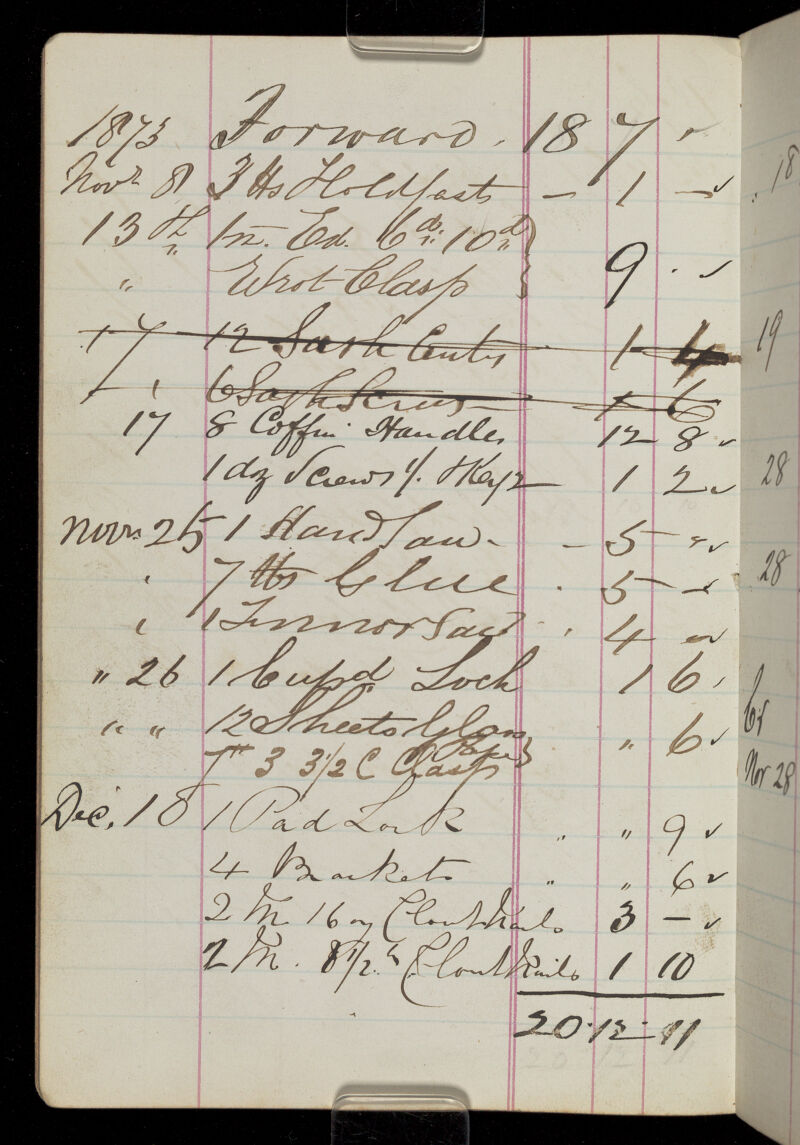 1873 Forward . 18 7 "
Novr 8 3 lbs Holdfasts – 1 –
13th 1 m. Ed. 6d. 10d
" Wrot Clasp 9 .
17 12 Sash Centres 1 4
" 6 Sash Screws 1 6
17 8 Coffin Handles 12 8
1 doz Screws 1/. 1 2
Novr 25 1 Hand Saw – 5 "
" 7 lbs Glue . 5 –
" 1 Tennor Saw . 4 "
" 26 1 Cupd Lock 1 6
" " 12 Sheets Glass " 6
Paper
3 3 1/2 C Clasp
Dec. 18 1 Pad Lock " " 9
4 Brackets " " 6
2 M. 16 oz Clout Nails 3 –
2 M. 8 1/2 Clout Nails 1 10
20 . 12 . 11
18
19
28
28
Cr
Nov 28